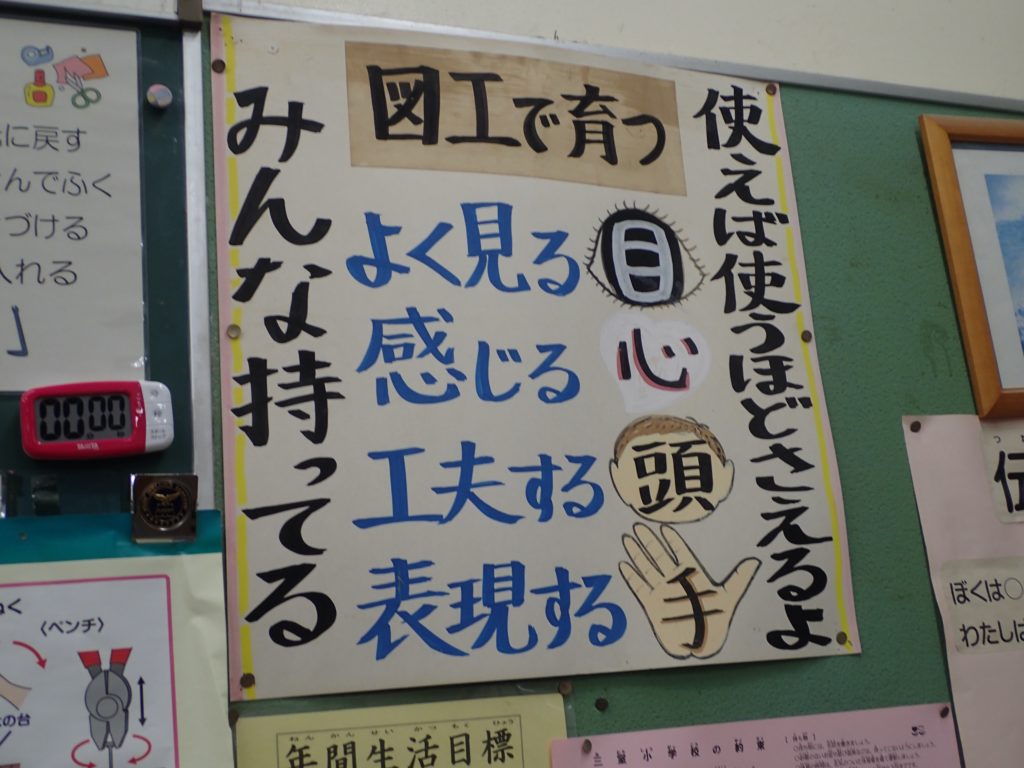 図工で育つ
使えば使うほどさえるよ
よく見る目
感じる心
工夫する頭
表現する手
みんな持ってる
に戻す
んでふく
づける
入れる
」
00 00
〈ペンチ〉
ねんかんせいかつもくひょう
年間生活目標
小学校の約束
伝
ぼくは○
わたしは